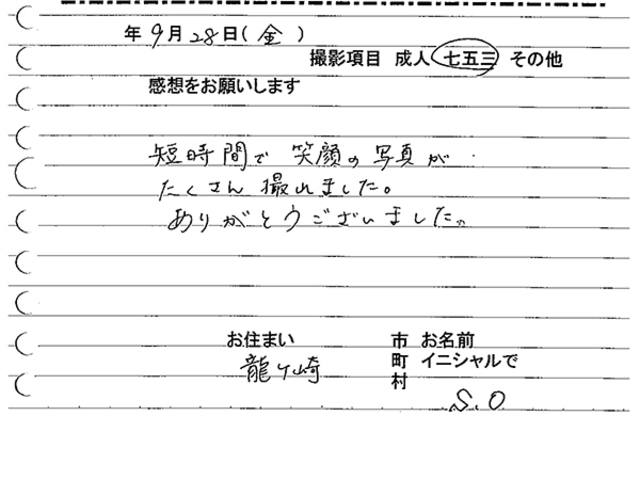 年 9月 28日(金)
撮影項目 成人 七五三 その他
感想をお願いします
短時間で 笑顔の写真が
たくさん撮れました。
ありがとうございました。
お住まい 市 お名前
龍ヶ崎 町 イニシャルで
村
S.O